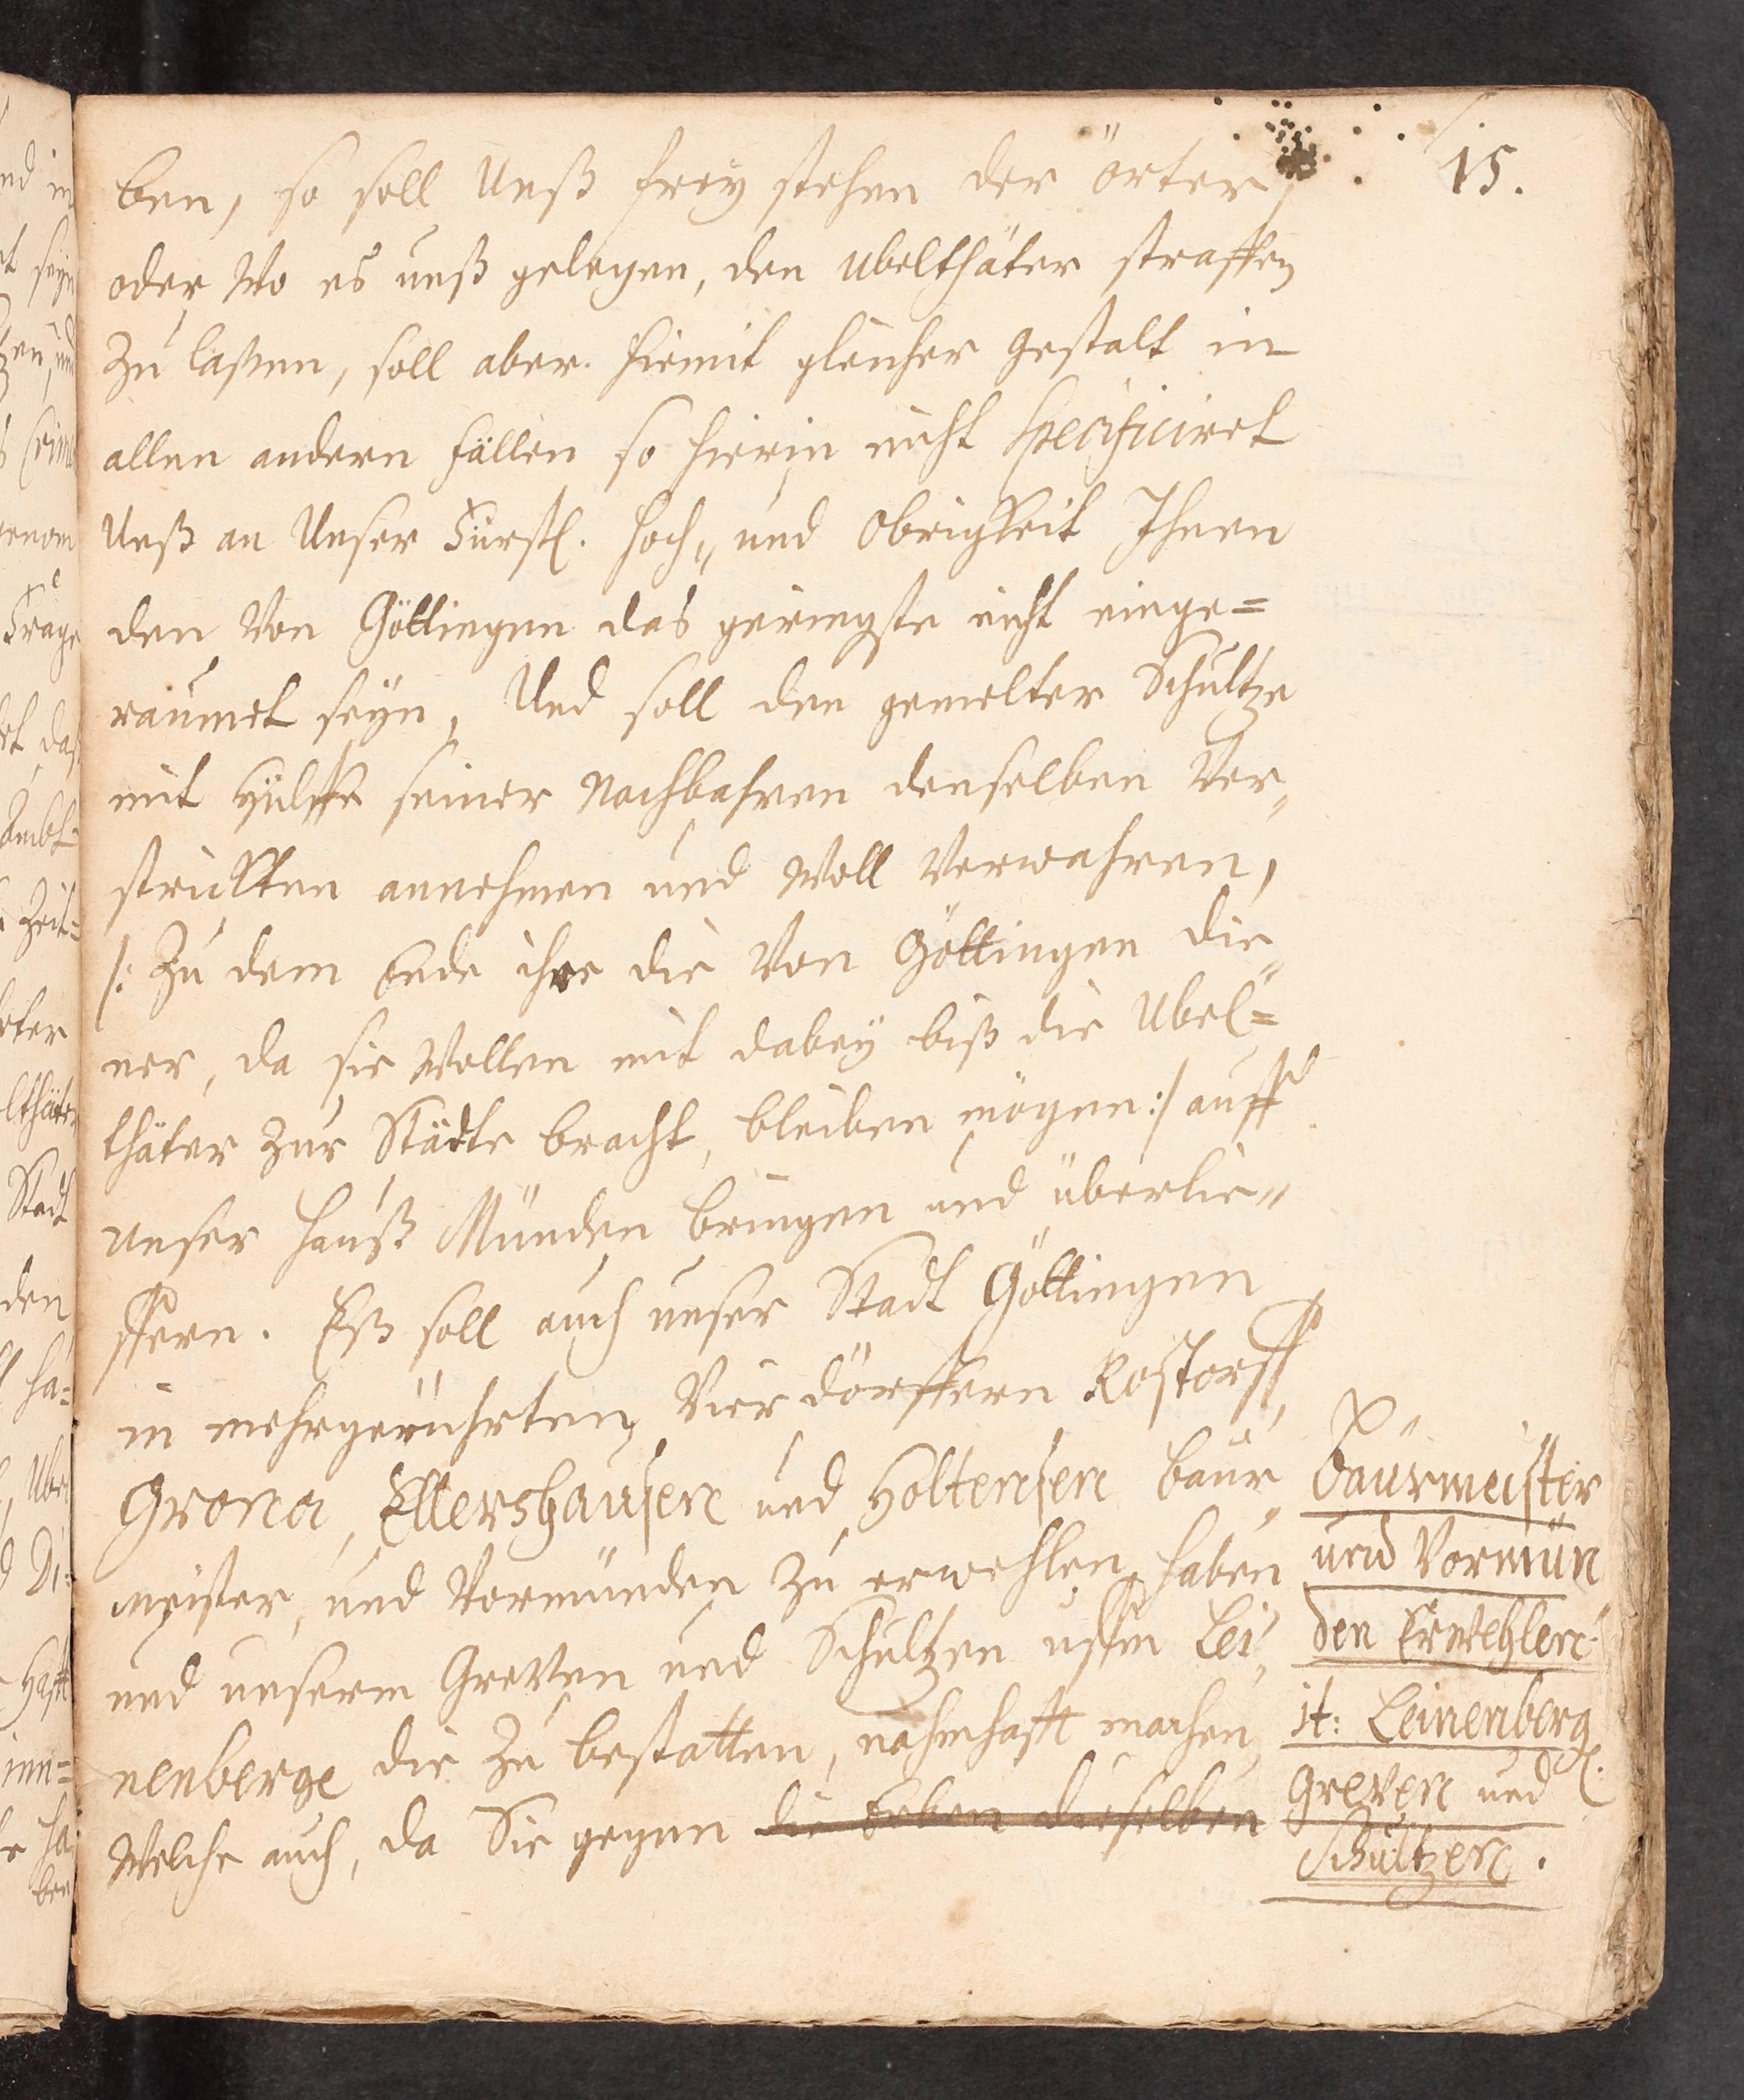 15.
ben, so soll Unß frey stehen der örter
oder Wo es unß gelegen, den Ubelthäter straffen
Zu laßen, soll aber hiemit gleicher gestalt in
allen andern fällen so hierin nicht specificiret
Unß an Unser Fürstl. Hoch„ und Obrigkeit Ihnen
den Von Göttingen das geringste nicht einge=
räumet seyn, Und soll den gemelter Schultze
mit Hülffe seiner Nachbahren denselben Ver„
strickten annehmen und Woll Verwahren,
/: Zu dem Ende ihre die Von Göttingen die„
ner, da sie Wollen mit dabey biß die Ubel=
thäter Zur Städte bracht, bleiben mögen :/ auff
unser Hauß Münden bringen und überlie„
ffern. Eß soll auch unser Stadt Göttingen
in mehrgerührten Vier dörffern Rostorff,
Grona, Ellershausen und Holtensen baur„
meister, und Vormünden Zu erwehlen haben
und unserm Greven und Schultzen uffm Lei„
nenberge die Zu bestatten, nahmhafft machen,
Welche auch, da Sie gegen die Erben dieselben
Baurmeister
und Vormün
den Erwehlen
it: Leinenberg.
Greven und
Schultzen.